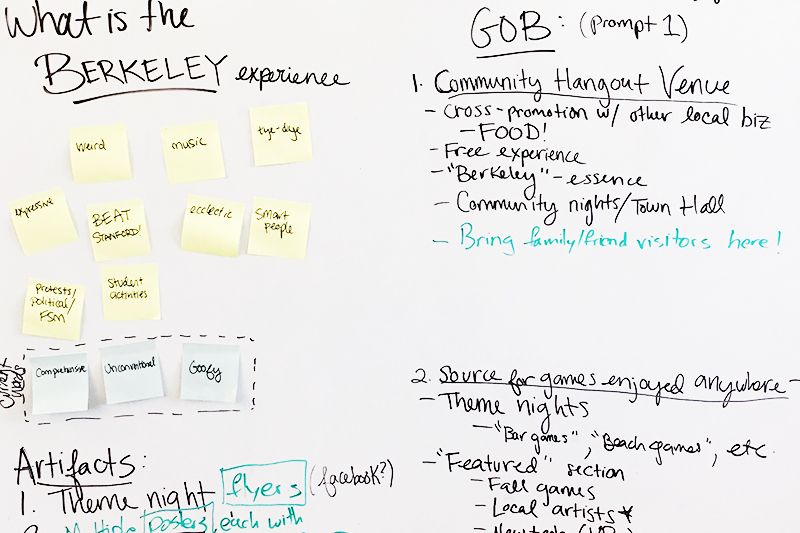 What is the
BERKELEY experience
weird
music
tye-dye
expressive
BEAT
STANFORD!
ecclectic
Smart
people
Protests/
political/
FSM
Student
activities
Current
words
Comprehensive
Unconventional
Goofy
Artifacts:
1. Theme night flyers (facebook?)
2. Multiple posters, each with
GOB: (Prompt 1)
1. Community Hangout Venue
- Cross-promotion w/ other local biz
- FOOD!
- Free experience
- "Berkeley" - essence
- Community nights/Town Hall
- Bring family/friend visitors here!
2. Source for games enjoyed anywhere -
- Theme nights
- "Bar games", "Beach games", etc.
- "Featured" section
- Fall games
- Local artists*